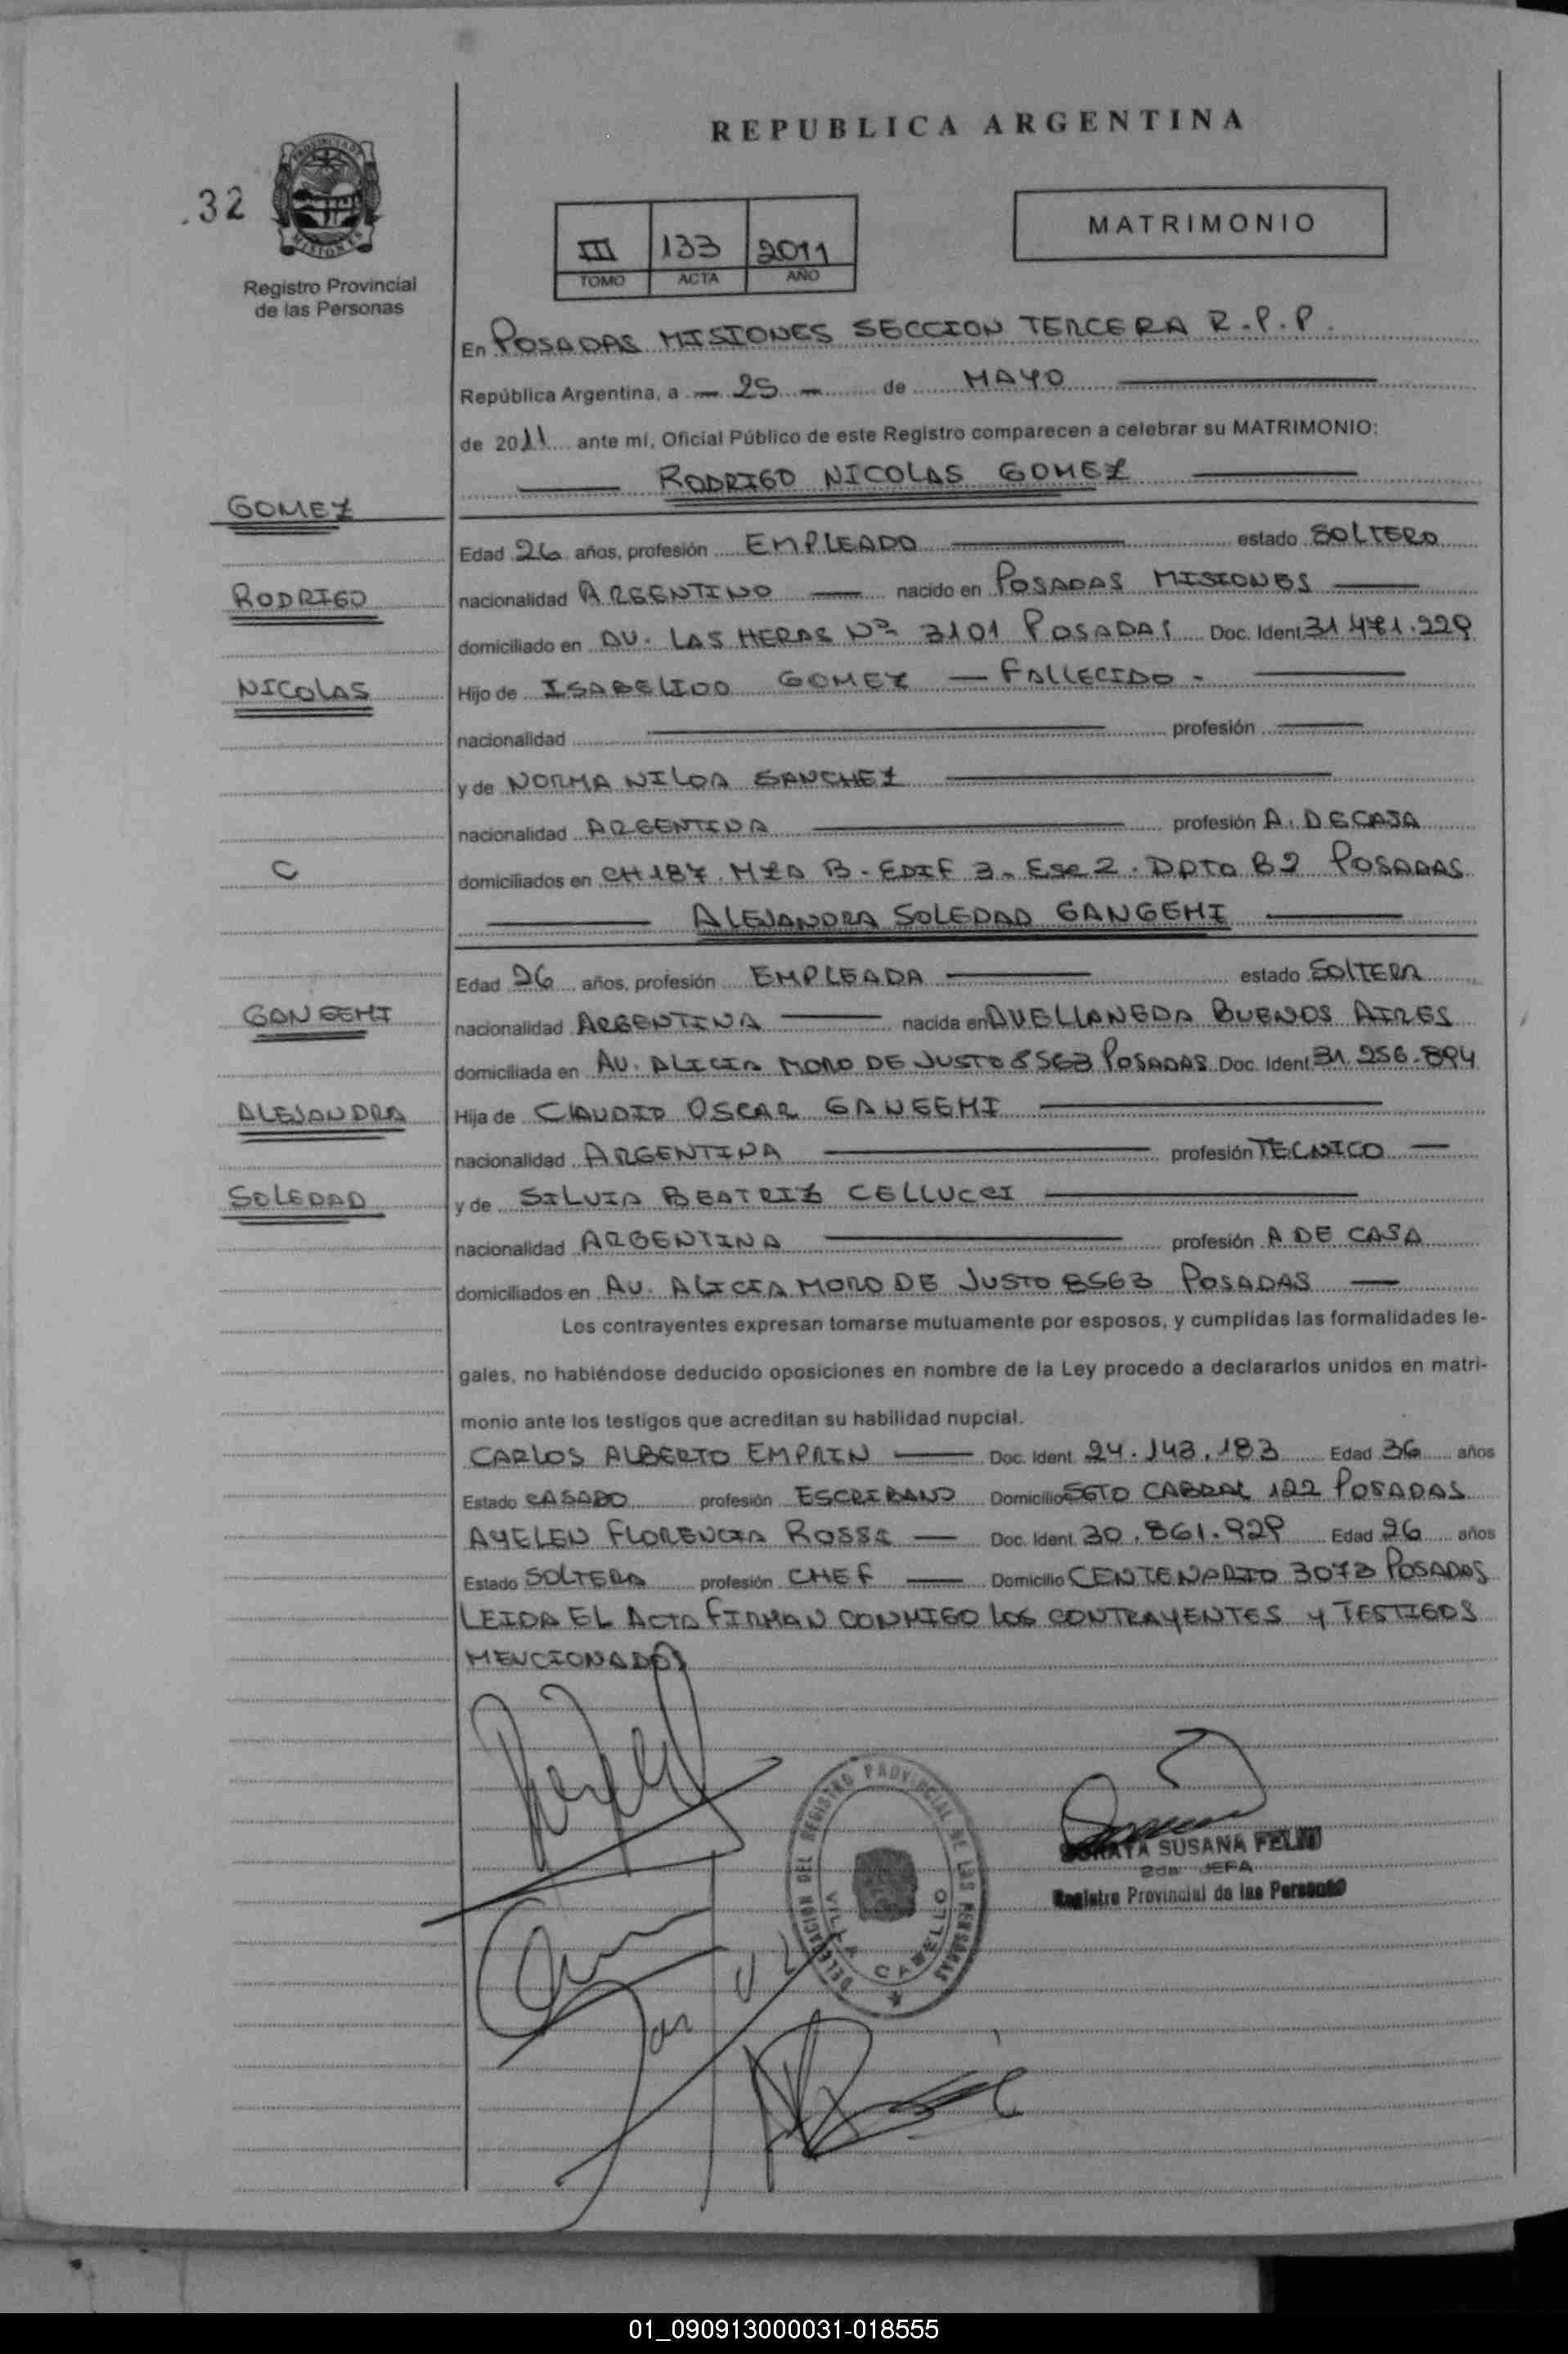 REPUBLICA ARGENTINA
32
PROVINCIA DE
MISIONES
Registro Provincial
de las Personas
III 133 2011
TOMO ACTA AÑO
MATRIMONIO
En POSADAS MISIONES SECCION TERCERA R.P.P.
República Argentina, a - 25 - de MAYO
de 2011 ante mí, Oficial Público de este Registro comparecen a celebrar su MATRIMONIO:
RODRIGO NICOLAS GOMEZ
GOMEZ
Edad 26 años, profesión EMPLEADO estado SOLTERO
RODRIGO
nacionalidad ARGENTINO nacido en POSADAS MISIONES
domiciliado en AV. LAS HERAS Nº 3101 POSADAS Doc. Ident 31.471.229
NICOLAS
Hijo de ISABELINO GOMEZ - FALLECIDO -
nacionalidad profesión
y de NORMA NILDA SANCHEZ
nacionalidad ARGENTINA profesión A. DE CASA
C
domiciliados en CH 187. MZA B - EDIF 3 - Esc 2. DPTO B2 POSADAS
ALEJANDRA SOLEDAD GANGEMI
Edad 26 años, profesión EMPLEADA estado SOLTERA
GANGEMI
nacionalidad ARGENTINA nacida en AVELLANEDA BUENOS AIRES
domiciliada en AV. ALICIA MORO DE JUSTO 8563 POSADAS Doc. Ident 31.256.894
ALEJANDRA
Hija de CLAUDIO OSCAR GANGEMI
nacionalidad ARGENTINA profesión TECNICO
SOLEDAD
y de SILVIA BEATRIZ CELLUCCI
nacionalidad ARGENTINA profesión A DE CASA
domiciliados en AV. ALICIA MORO DE JUSTO 8563 POSADAS
Los contrayentes expresan tomarse mutuamente por esposos, y cumplidas las formalidades le-
gales, no habiéndose deducido oposiciones en nombre de la Ley procedo a declararlos unidos en matri-
monio ante los testigos que acreditan su habilidad nupcial.
CARLOS ALBERTO EMPRIN Doc. Ident. 24.143.183 Edad 36 años
Estado CASADO profesión ESCRIBANO Domicilio SGTO CABRAL 122 POSADAS
AYELEN FLORENCIA ROSSI Doc. Ident. 30.861.929 Edad 26 años
Estado SOLTERA profesión CHEF Domicilio CENTENARIO 3073 POSADAS
LEIDA EL ACTA FIRMAN CONMIGO LOS CONTRAYENTES Y TESTIGOS
MENCIONADOS
DELEGACION DEL REGISTRO PROVINCIAL DE LAS PERSONAS
VILLA CABELLO
SORAYA SUSANA FELIU
2da JEFA
Registro Provincial de las Personas
01_090913000031-018555